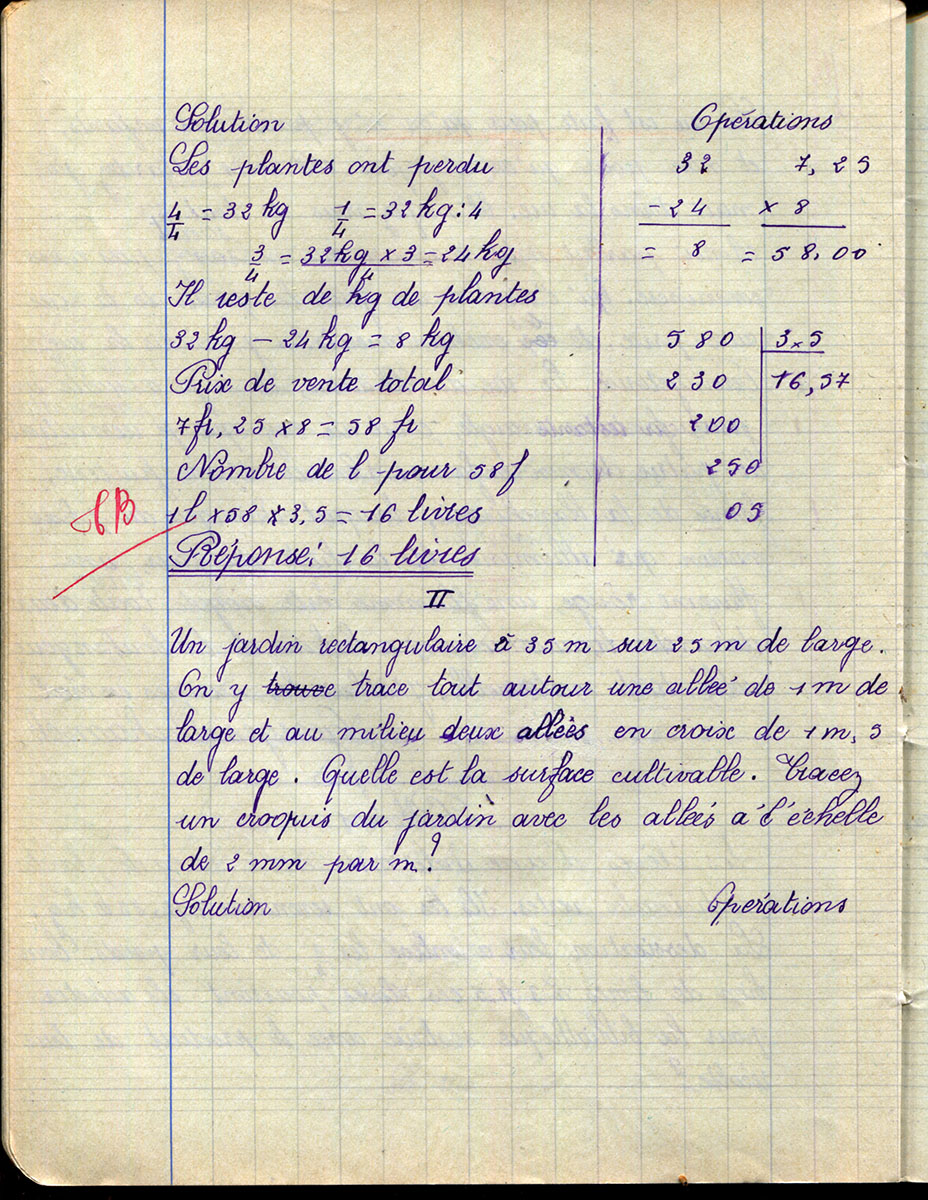 Solution
Opérations
Les plantes ont perdu
4/4 = 32 kg 1/4 = 32 kg : 4
3/4 = 32 kg x 3 / 4 = 24 kg
Il reste de kg de plantes
32 kg — 24 kg = 8 kg
Prix de vente total
7 fr, 25 x 8 = 58 fr
Nombre de l pour 58 f
1 l x 58 x 3,5 = 16 livres
Réponse : 16 livres
32 7,25
- 24 x 8
= 8 = 58,00
580 3,5
230 16,57
200
250
05
TB
II
Un jardin rectangulaire à 35 m sur 25 m de large.
On y trouve trace tout autour une alleé de 1 m de
large et au milieu deux alleés en croix de 1 m, 5
de large. Quelle est la surface cultivable. Tracez
un croquis du jardin avec les alleés à l'échelle
de 2 mm par m. ?
Solution
Opérations